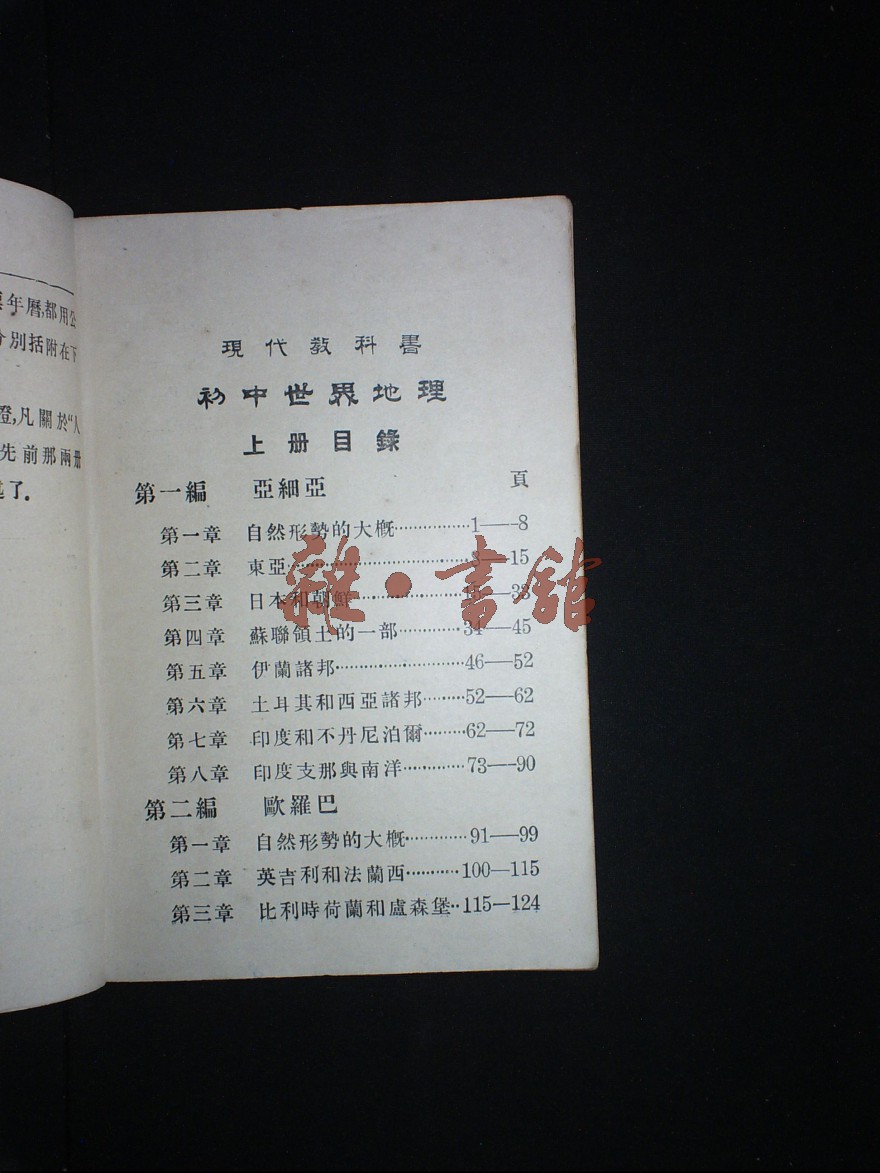 年曆,都用公
分別括附在下
證,凡關於“人
先前那兩册
了.
現代教科書
初中世界地理
上册目錄
頁
第一編 亞細亞
第一章 自然形勢的大槪················1——8
第二章 東亞························8——15
第三章 日本和朝鮮··················15——33
第四章 蘇聯領土的一部············34——45
第五章 伊蘭諸邦························46——52
第六章 土耳其和西亞諸邦·········52——62
第七章 印度和不丹尼泊爾·········62——72
第八章 印度支那與南洋············73——90
第二編 歐羅巴
第一章 自然形勢的大槪············91——99
第二章 英吉利和法蘭西···········100—115
第三章 比利時荷蘭和盧森堡··115—124
雜·書舘